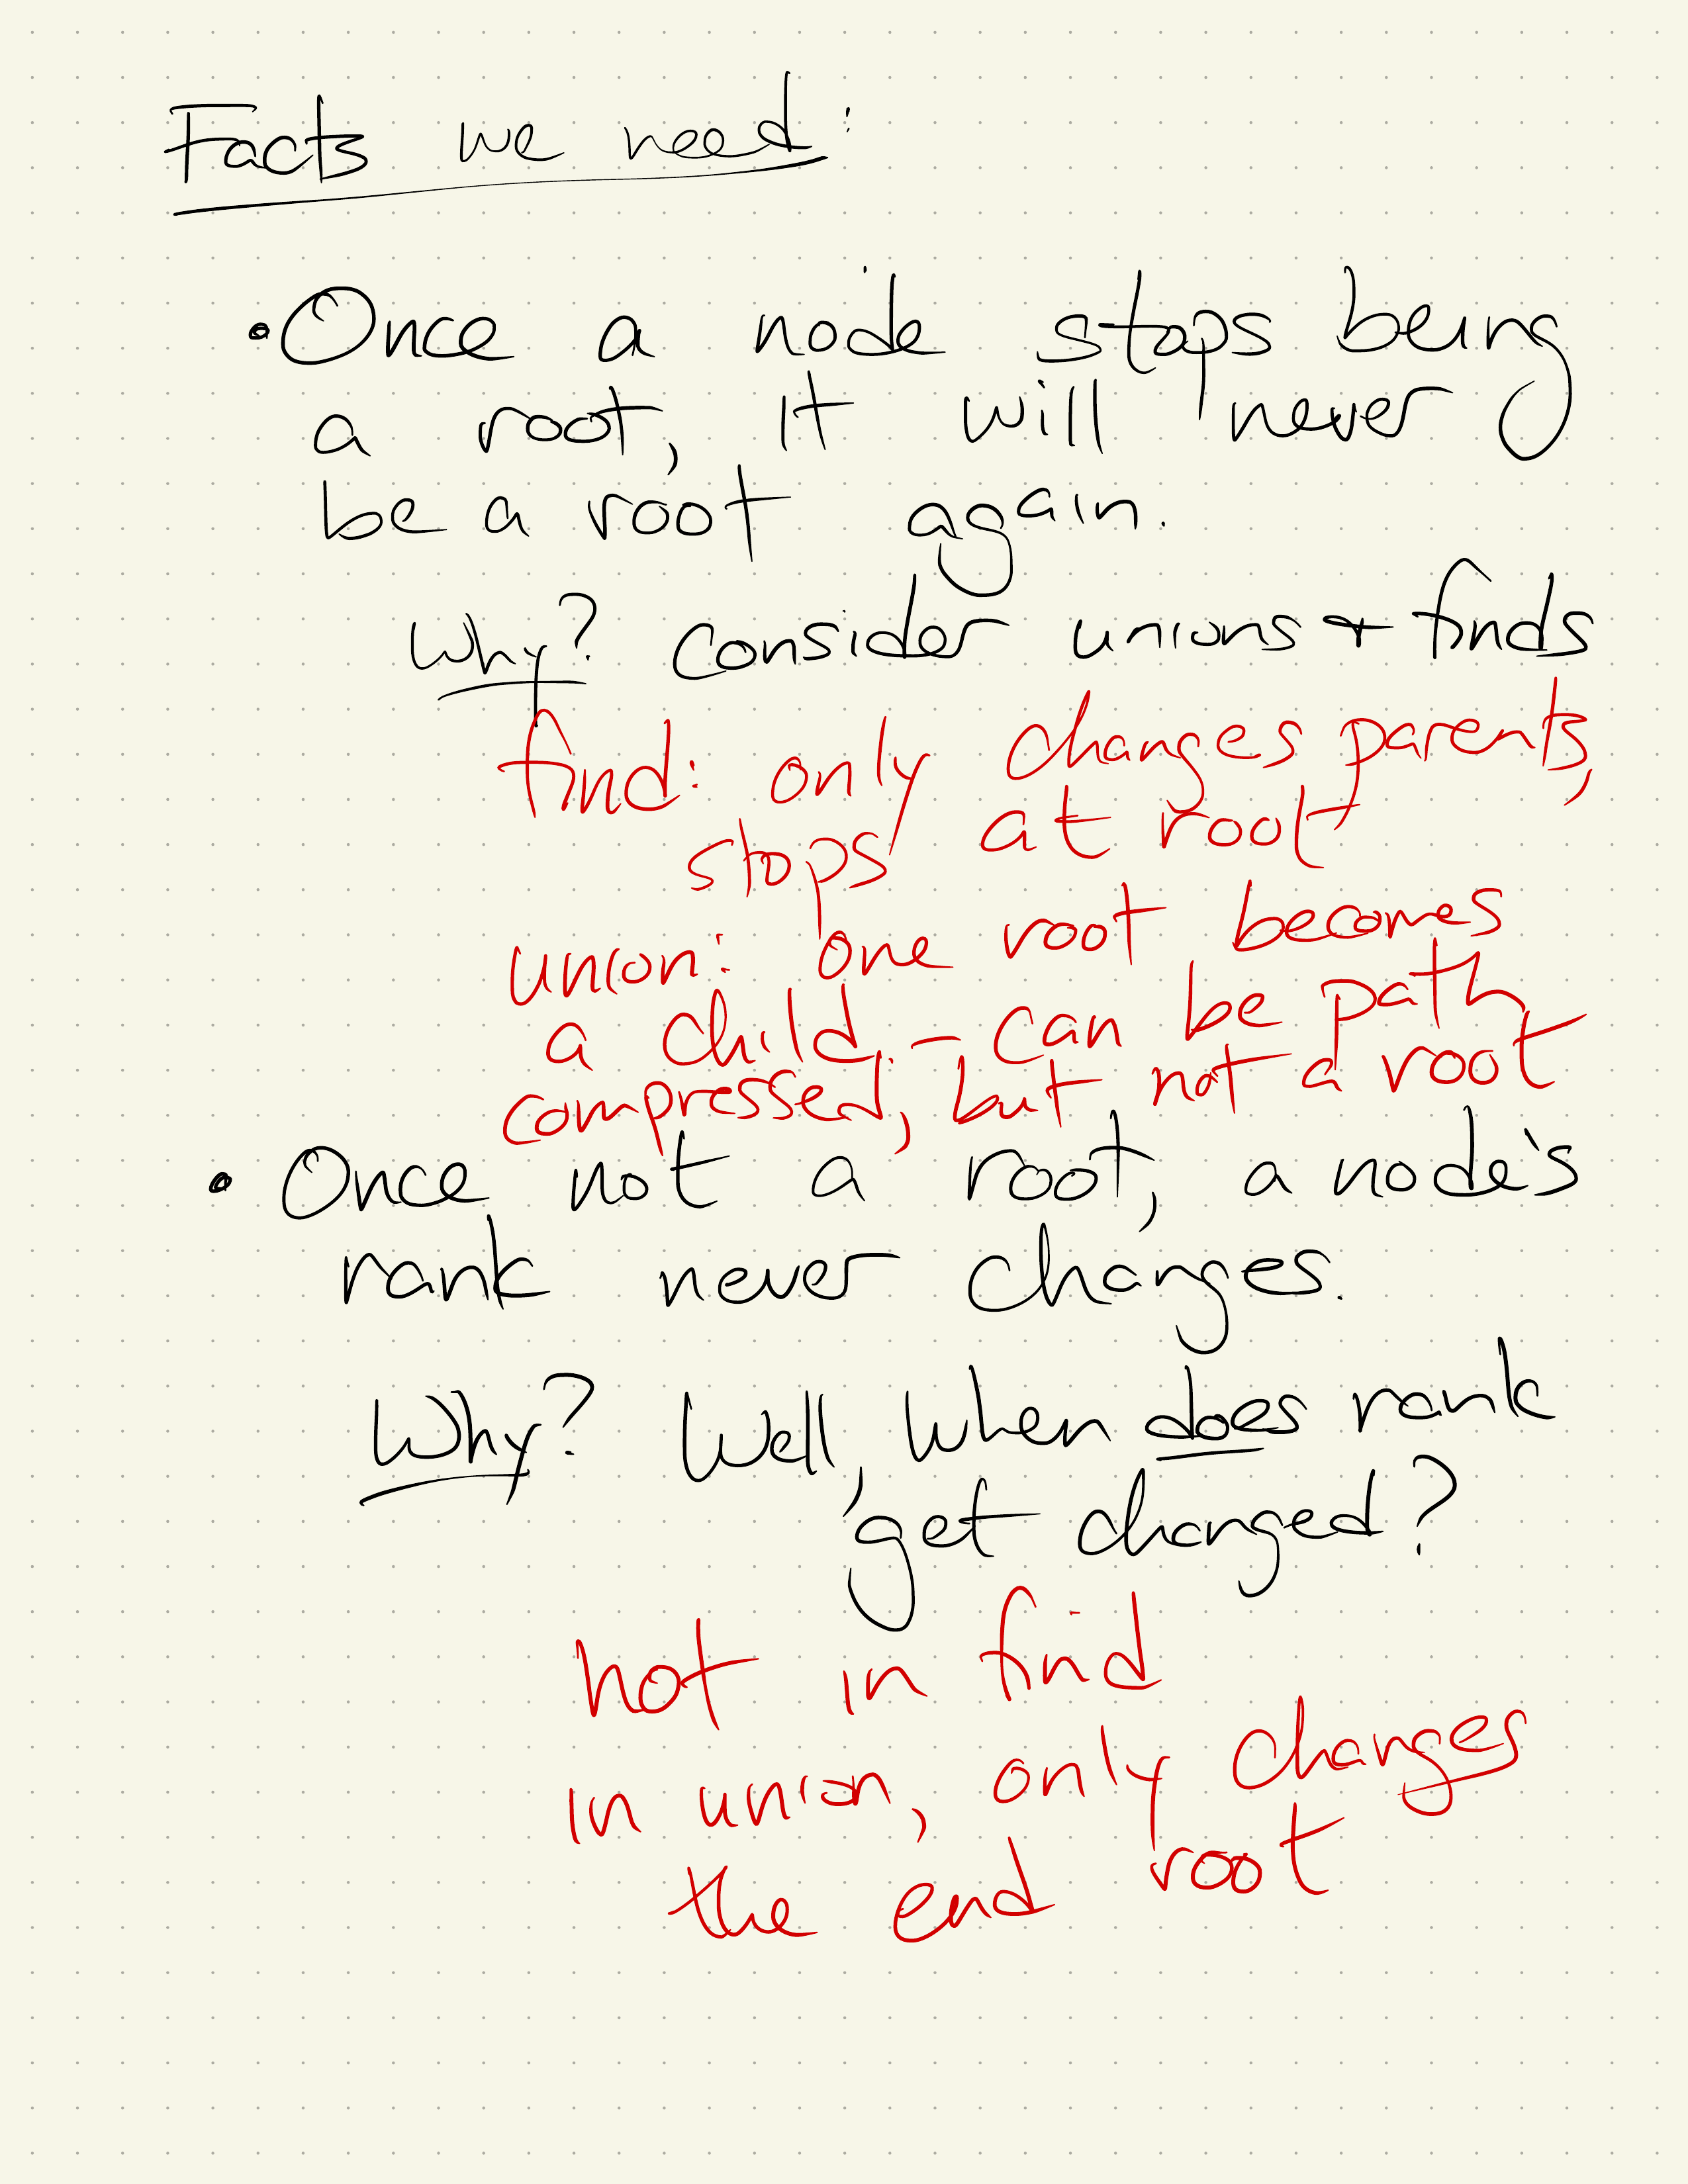 Facts we need:
• Once a node stops being
a root, it will never
be a root again.
Why? consider unions + finds
find: only changes parents,
stops at root
union: one root becomes
a child. - can be path
compressed, but not a root
• Once not a root, a node's
rank never changes.
Why? Well, when does rank
get changed?
not in find
in union, only changes
the end root